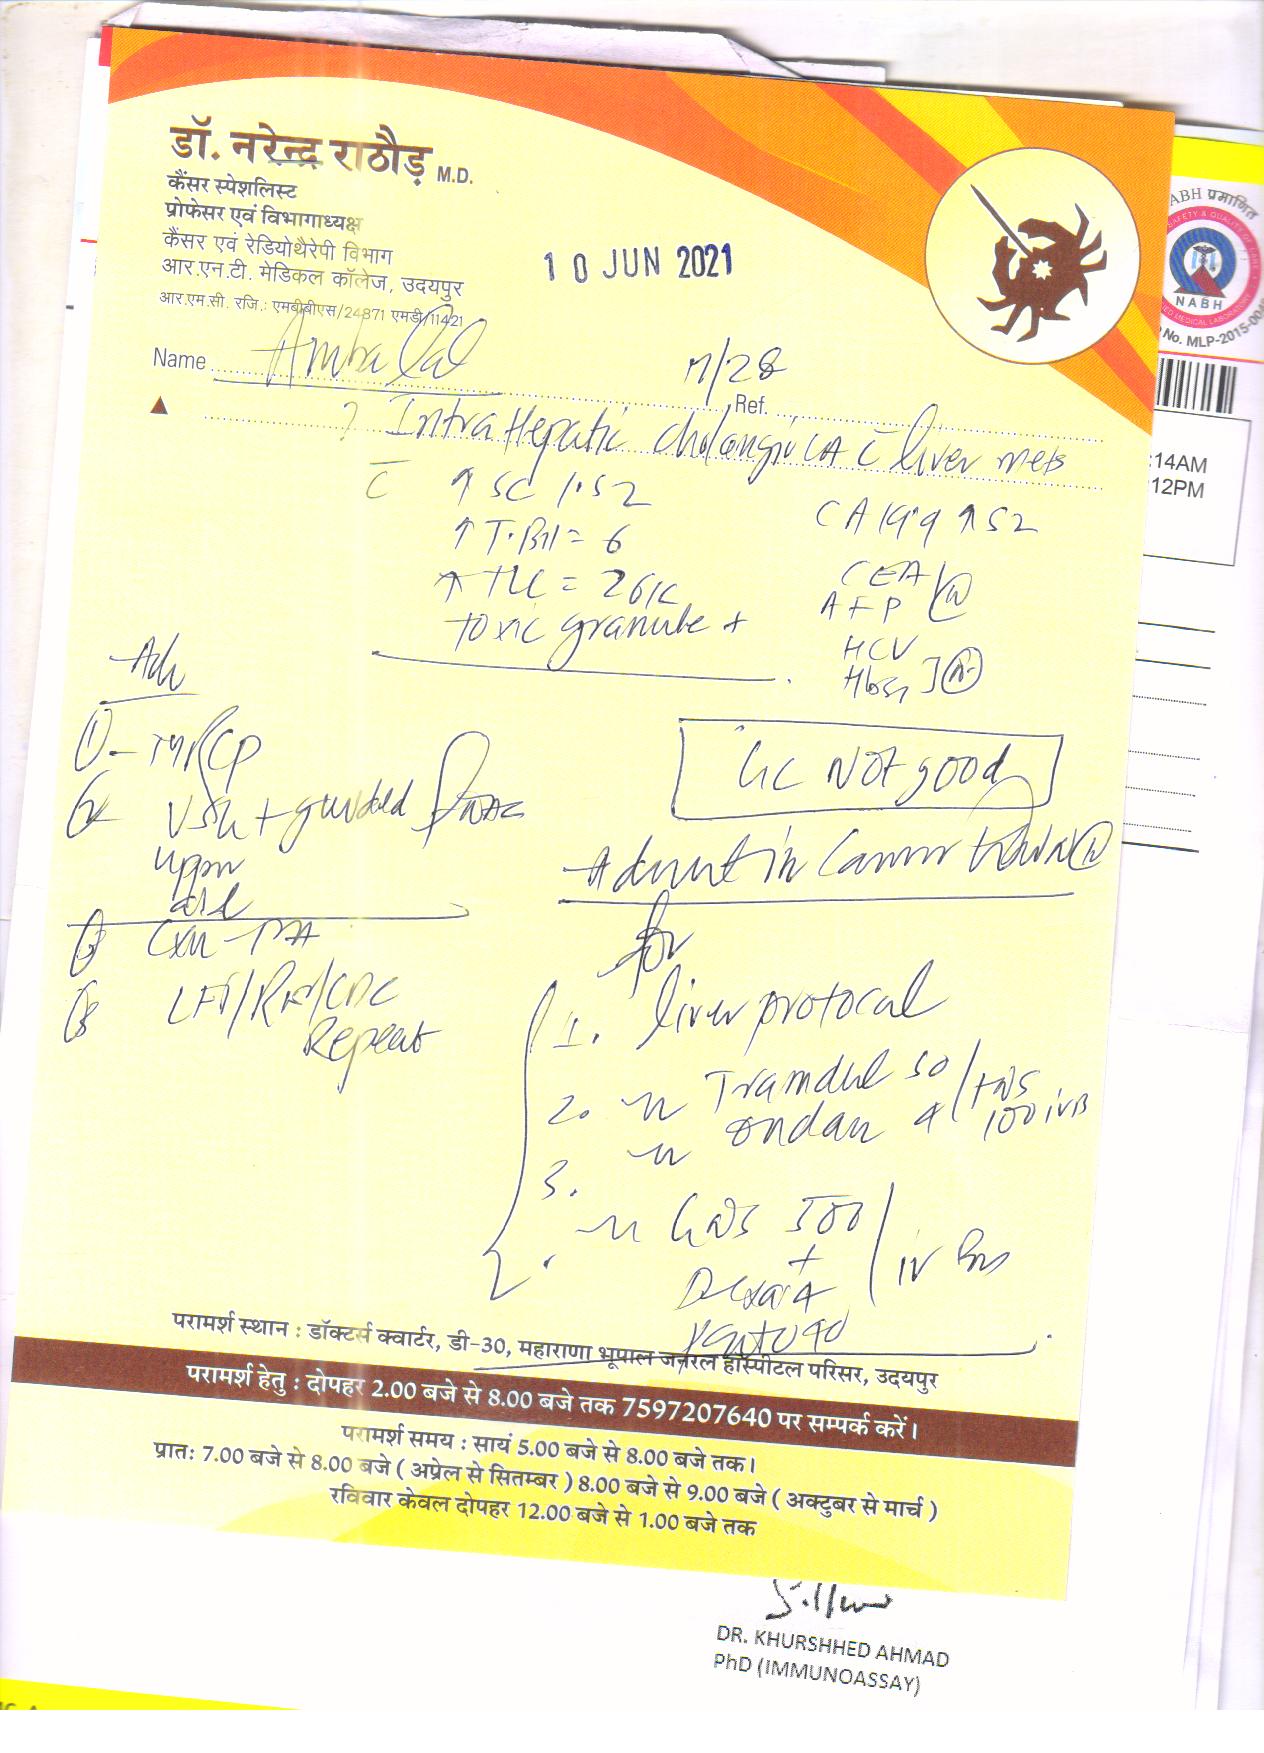 डॉ. नरेन्द्र राठौड़ M.D.
कैंसर स्पेशलिस्ट
प्रोफेसर एवं विभागाध्यक्ष
कैंसर एवं रेडियोथैरेपी विभाग
आर.एन.टी. मेडिकल कॉलेज, उदयपुर
आर.एम.सी. रजि.: एमबीबीएस/24871 एमडी/11421
10 JUN 2021
ABH प्रमाणित
SAFETY & QUALITY OF
NABH
MEDICAL LABORATORY
No. MLP-2015-00
:14AM
:12PM
Name Amba Lal M/28
Ref.
? IntraHepatic cholangio CA c̄ liver mets
c̄ ↑ SC 1.52
↑ T.Bil = 6
↑ TLC = 26K
toxic granule +
CA 19.9 ↑ 52
CEA
AFP (N)
HCV
HbsAg
Adv
1 - MRCP
USG + guided FNAC
upper
abd
CXR - PA
LFT/RFT/CBC
Repeat
GC NOT good
Admit in Cancer
for
1. liver protocal
2. Tramdol 50 / +NS
ondan 4 100 iv
3.
DNS 500
+
Dexa 4
Panto 40
iv
परामर्श स्थान : डॉक्टर्स क्वार्टर, डी-30, महाराणा भूपाल जनरल हॉस्पीटल परिसर, उदयपुर
परामर्श हेतु : दोपहर 2.00 बजे से 8.00 बजे तक 7597207640 पर सम्पर्क करें।
परामर्श समय : सायं 5.00 बजे से 8.00 बजे तक।
प्रातः 7.00 बजे से 8.00 बजे ( अप्रेल से सितम्बर ) 8.00 बजे से 9.00 बजे ( अक्टुबर से मार्च )
रविवार केवल दोपहर 12.00 बजे से 1.00 बजे तक
DR. KHURSHHED AHMAD
PhD (IMMUNOASSAY)